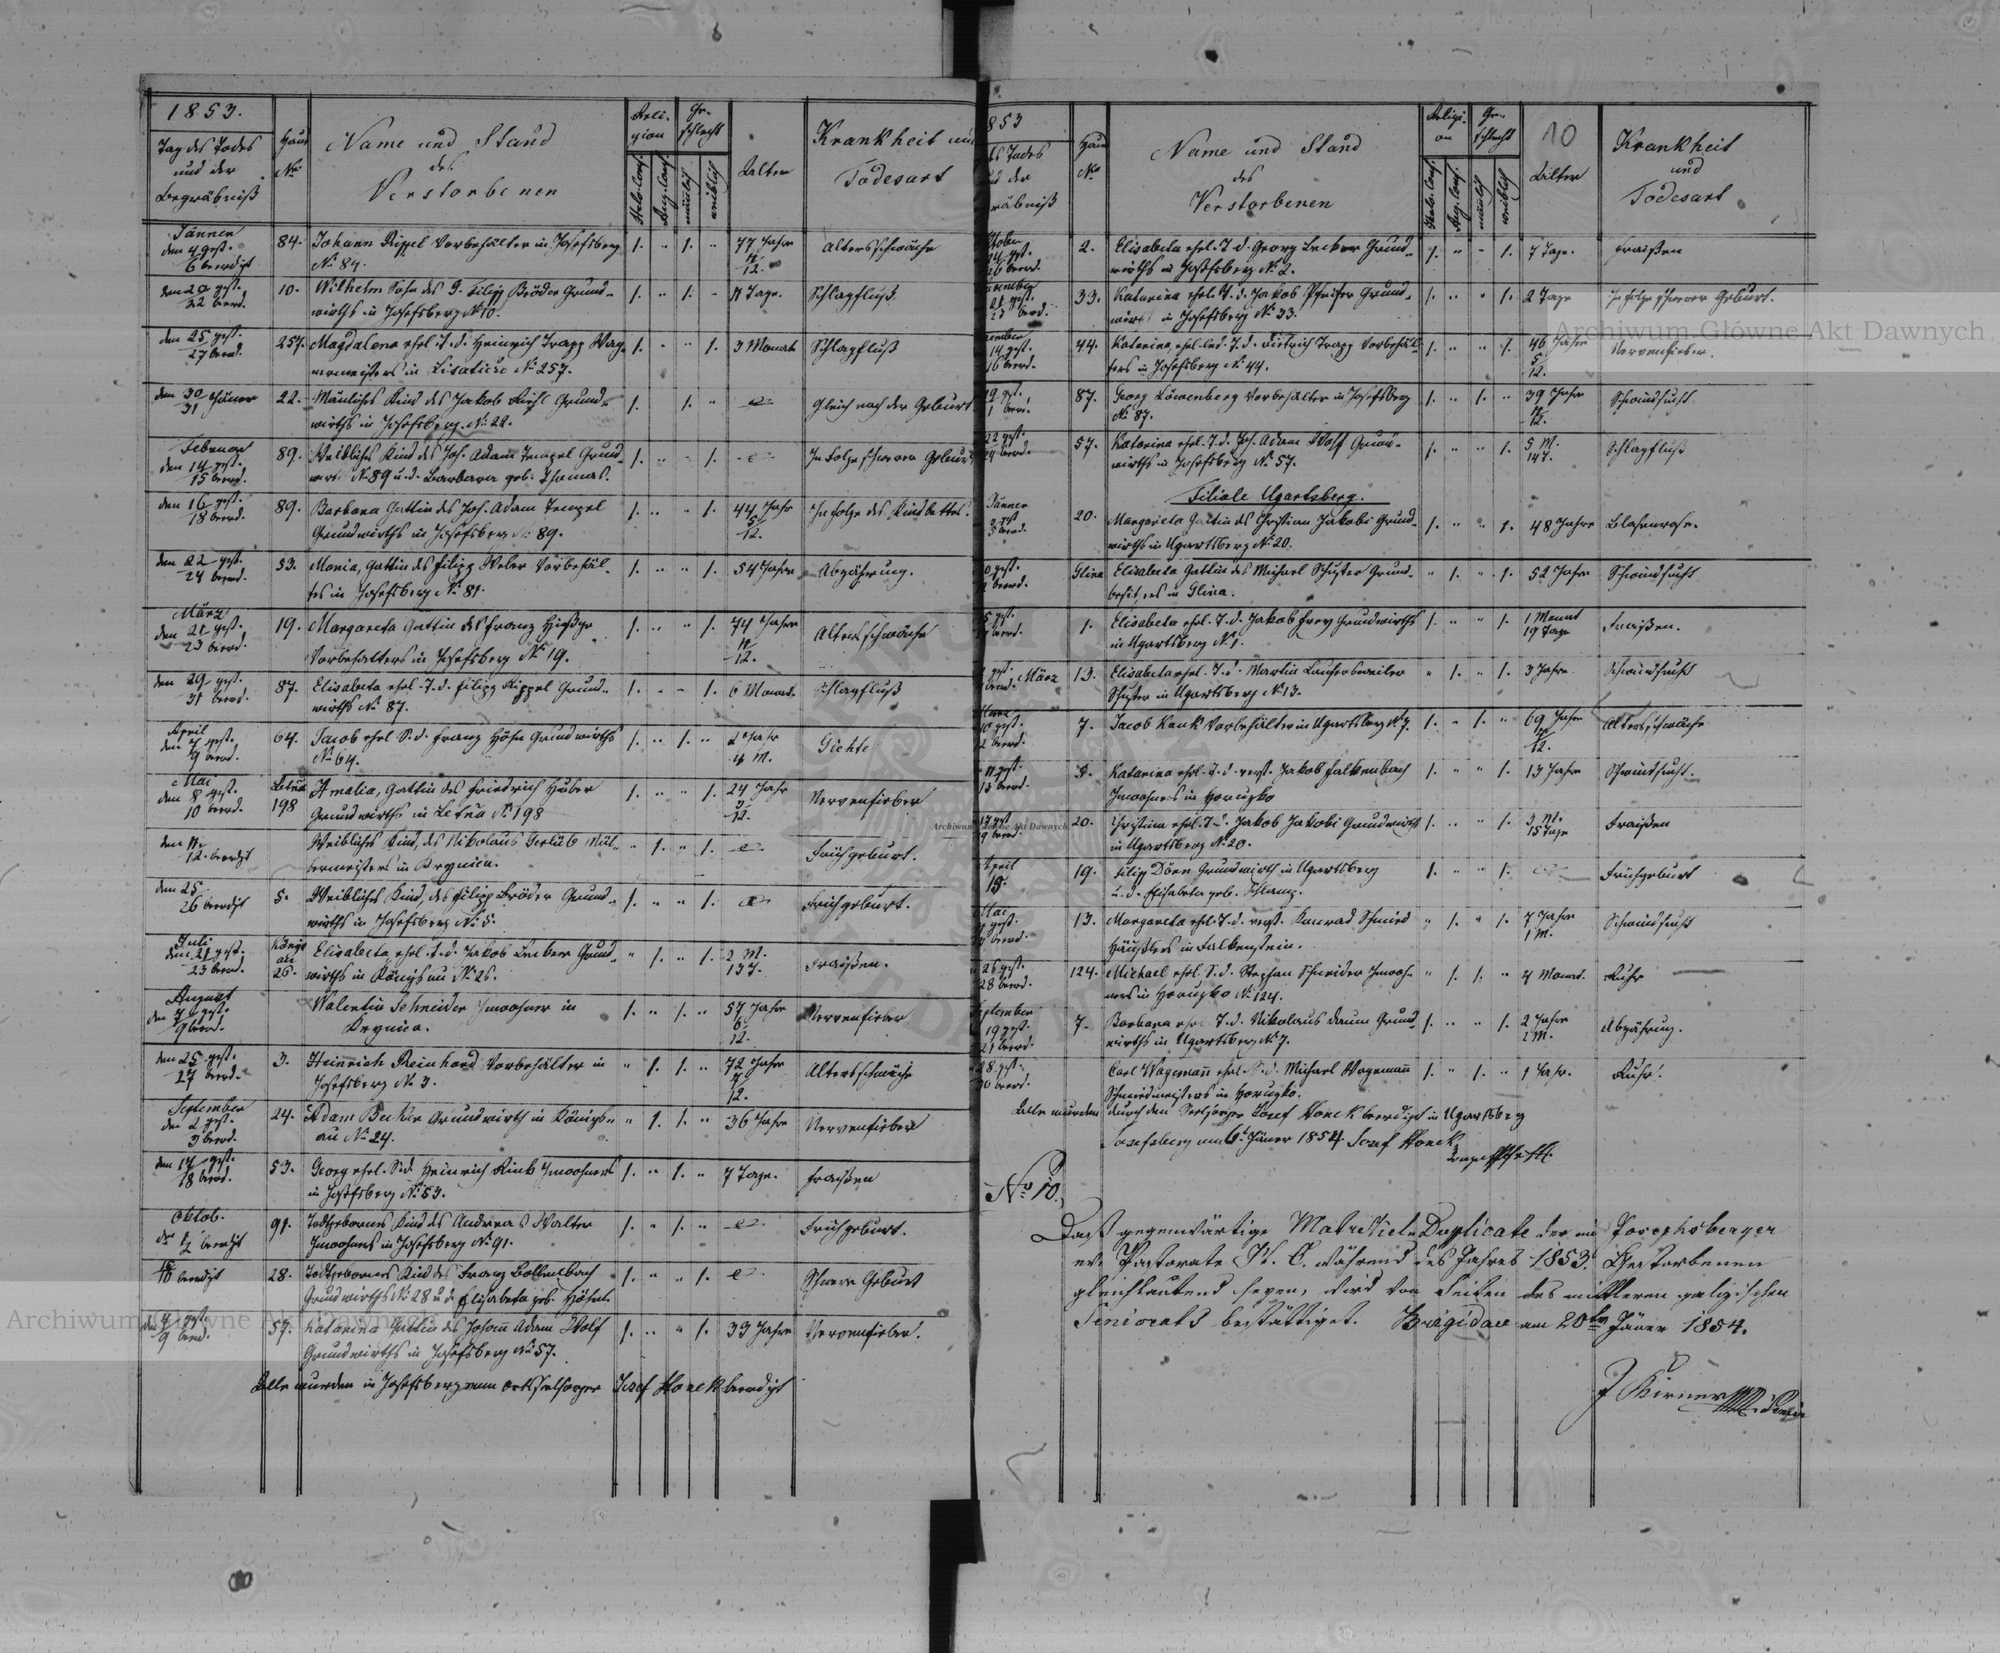 1853.
Tag des Todes
und der
Begräbniß
Haus
No
Name und Stand
des
Verstorbenen
Reli-
gion
Helv. Conf.
Aug. Conf.
Ge-
schlecht
männlich
weiblich
Alter
Krankheit und
Todesart
Jänner
den 4 gest.
6 beerdigt
84.
Johann Rippel Vorbehälter in Josefsberg
No 84.
1. " 1. "
77 Jahre
Altersschwäche
den 20 gest.
22 beerd.
10.
Wilhelm Sohn des G. Filipp Bröder Grund-
wirths in Josefsberg No 10.
1. " 1. "
Tage.
Schlagfluß
den 25 gest.
27 beerd.
257.
Magdalena ehel. T. d. Heinrich Trapp Wag-
nermeisters in No 257.
1. " " 1.
3 Monate
Schlagfluß
den 30
31 Jänner
22.
Mänliches Kind des Jakob Grund-
wirths in Josefsberg. No 22.
1. 1. "
Gleich nach der Geburt
Februar
den 14 gest.
15 beerd.
89.
Weibliches Kind des Joh. Adam Tempel Grund-
wirt. No 89 u. d. Barbara geb. Thomas.
1. " " 1.
In Folge schwerer Geburt
den 16 gest.
18 beerd.
89.
Barbara Gattin des Joh. Adam Tempel
Grundwirths in Josefsberg No 89.
1. " " 1.
44 Jahr
5/12.
In Folge des Kindbettes.
den 22 gest.
24 beerd.
53.
Maria, Gattin des Filipp Weber Vorbehäl-
ters in Josefsberg No 81.
1. " " 1.
54 Jahre
Abzährung.
März
den 21 gest.
23 beerd.
19.
Margareta Gattin des Franz
Vorbehälters in Josefsberg No 19.
1. " " 1.
74 Jahre
Altersschwäche
den 29 gest.
31 beerd.
87.
Elisabeta ehel. T. d. Filipp Rippel Grund-
wirths No 87.
1. " " 1.
6 Monat.
Schlagfluß
April
den 7 gest.
9 beerd.
64.
Jacob ehel. S. d. Franz Höhn Grundwirths
No 64.
1. " 1. "
2 Jahr
4 M.
Gichte
Mai
den 8 gest.
10 beerd.
198
Amalia, Gattin des Friedrich Huber
Grundwirths in No 198
1. " " 1.
24 Jahr
3/12.
Nervenfieber
den 11.
12. beerdigt
Weibliches Kind, des Nikolaus Gerlub Mül-
lermeisters in Krynica.
" 1. " 1.
Frühgeburt.
den 25
26 beerdigt
5.
Weibliches Kind, des Filipp Bröder Grund-
wirths in Josefsberg No 5.
1. " " 1.
Frühgeburt.
Juli
den 21 gest.
23 beerd.
Königs
au
26.
Elisabeta ehel. T. d. Jakob Becker Grund-
wirths in Königsau No 26.
" 1. " 1.
2 M.
13 T.
Fraißen.
August
den 7 gest.
9 beerd.
Valentin Schneider Inwohner in
Krynica.
1. " 1. "
57 Jahre
6/12.
Nervenfieber
den 25 gest.
27 beerd.
3.
Heinrich Reinhard Vorbehälter in
Josefsberg No 3.
" 1. 1. "
72 Jahre
Altersschwäche
September
den 2 gest.
3 beerd.
24.
Adam Becker Grundwirth in Königs-
au No 24.
" 1. 1. "
36 Jahre
Nervenfieber
den 17 gest.
18 beerd.
53.
Georg ehel. S. d. Heinrich Rink Inwohners
in Josefsberg No 53.
1. " 1. "
7 Tage.
Fraißen
Oktob.
den 1/2 beerdigt
91.
Todtgebornes Kind des Andreas Walter
Inwohners in Josefsberg No 91.
1. " 1. "
Frühgeburt.
10 beerdigt
28.
Todtgebornes Kind des Franz Bollenbach
Grundwirths No 28 u. d. Elisabeta geb. Höhn.
1. " " 1.
Schwere Geburt
9 beerd.
57.
Katarina Gattin des Johann Adam Wolf
Grundwirths in Josefsberg No 57.
1. " " 1.
33 Jahre
Nervenfieber.
Alle wurden in Josefsberg vom Ortsseelsorger Josef Honek beerdigt
853
des Todes
und der
räbniß
Haus
No
Name und Stand
des
Verstorbenen
Religi-
on
Helv. Conf.
Aug. Conf.
Ge-
schlecht
männlich
weiblich
10
Alter
Krankheit
und
Todesart
26 beerd.
2.
Elisabeta ehel. T. d. Georg Becker Grund-
wirths in Josefsberg No 2.
1. " " 1.
7 Tage.
Fraißen
21 gest.
23 beerd.
33.
Katarina ehel. T. d. Jakob Pfeifer Grund-
wirt in Josefsberg No 33.
1. " " 1.
2 Tage
In Folge schwerer Geburt.
14 gest.
16 beerd.
44.
Katarina, ehel. led. T. d. Dietrich Trapp Vorbehäl-
ters in Josefsberg No 44.
1. " " 1.
46 Jahre
5/12.
Nervenfieber.
87.
Georg Löwenberg Vorbehälter in Josefsberg
No 87.
1. " 1. "
39 Jahre
Schwindsucht
22 gest.
24 beerd.
57.
Katarina ehel. T. d. Joh. Adam Wolf Grund-
wirths in Josefsberg No 57.
1. " " 1.
5 M.
14 T.
Schlagfluß
Filiale Ugartsberg.
Jänner
3 gest
5 beerd.
20.
Margareta Gattin des Christian Jakobi Grund-
wirths in Ugartsberg No 20.
1. " " 1.
48 Jahre
gest.
beerd.
Glina
Elisabeta Gattin des Michael Schuster Grund-
besitzers in Glina.
" 1. " 1.
52 Jahre
Schwindsucht
5 gest.
beerd.
1.
Elisabeta ehel. T. d. Jakob Frey Grundwirths
in Ugartsberg No 1.
1. " " 1.
1 Monat
19 Tage
Fraißen.
März
13.
Elisabeta ehel. T. d. Martin Laufersweiler
Schuster in Ugartsberg No 13.
" 1. " 1.
3 Jahre
Schwindsucht
März
10 gest.
12 beerd.
7.
Jacob Kauk Vorbehälter in Ugartsberg No 7.
1. " 1. "
69 Jahre
Altersschwäche
gest.
13 beerd.
Katarina ehel. T. d. verst. Jakob Falkenbach
Inwohners in Horuzko
1. " " 1.
13 Jahre
Schwindsucht.
17 gest
9 beerd.
20.
Christina ehel. T. d. Jakob Jakobi Grundwirths
in Ugartsberg No 20.
1. " " 1.
3 M.
15 Tage
Fraißen
April
19.
Filip Dörn Grundwirth in Ugartsberg
u. d. Elisabeta geb.
1. " " 1.
Frühgeburt
Mai
gest.
beerd.
13.
Margareta ehel. T. d. verst. Konrad Schmied
Häuslers in Falkenstein.
" 1. " 1.
7 Jahre
1 M.
Schwindsucht
26 gest.
28 beerd.
124.
Michael ehel. S. d. Stephan Schneider Inwoh-
ners in Horuzko No 124.
" 1. 1. "
4 Monat.
Ruhr
September
19 gest.
21 beerd.
7.
Barbara ehel. T. d. Nikolaus Daum Grund-
wirths in Ugartsberg No 7.
1. " " 1.
2 Jahre
2 M.
Abzährung.
28 gest.
30 beerd.
Carl Wagemann ehel. S. d. Michael Wagemann
Schmiedmeisters in Horuzko.
1. " 1. "
1 Jahr.
Ruhr.
Alle wurden durch den Seelsorger Josef Honek beerdigt in Ugartsberg
Josefsberg am 6t Jäner 1854. Josef Honek
No 10.
Daß gegenwärtige Matrikeln Duplicate der im Josephsberger
ev. Pastorate H. C. während des Jahres 1853. Verstorbenen
gleichlautend seyen, wird von Seiten des mittleren galizischen
Seniorats bestättiget. Brigidau am 20ten Jäner 1854.
Archiwum Główne Akt Dawnych
Archiwum Główne Akt Dawnych
Archiwum Główne Akt Dawnych